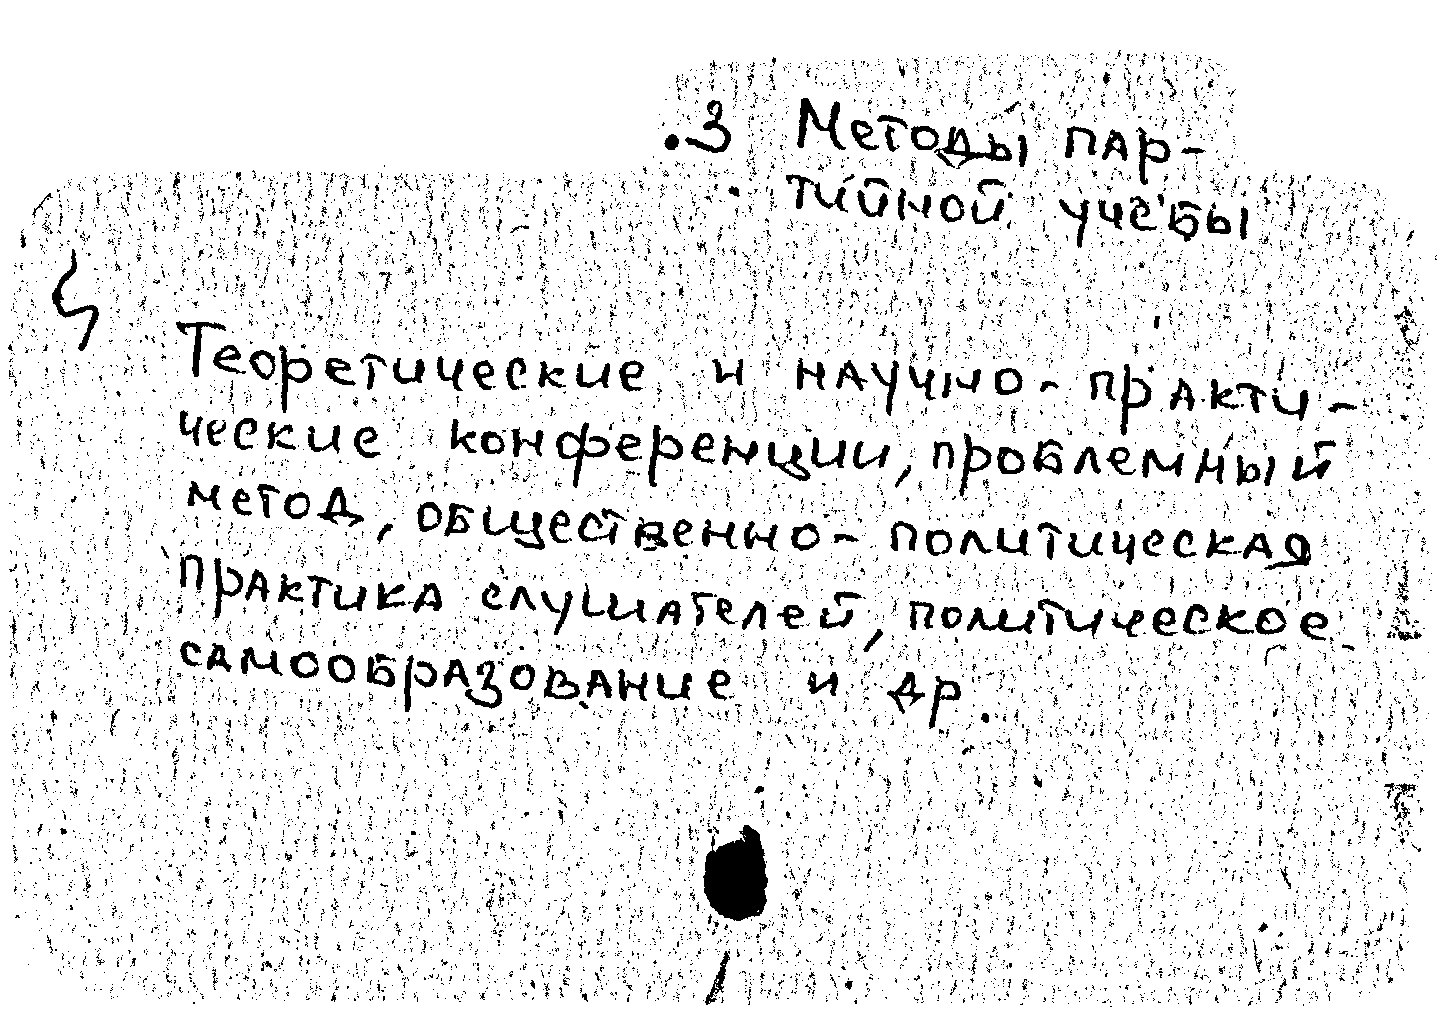 .3 Методы пар-
тийной учёбы
Теоретические и научно-практи-
ческие конференции, проблемный
метод, общественно-политическая
практика слушателей, политическое
самообразование и др.